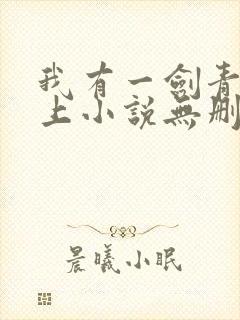 我有一劍青
上小説無刪
晨曦小眠